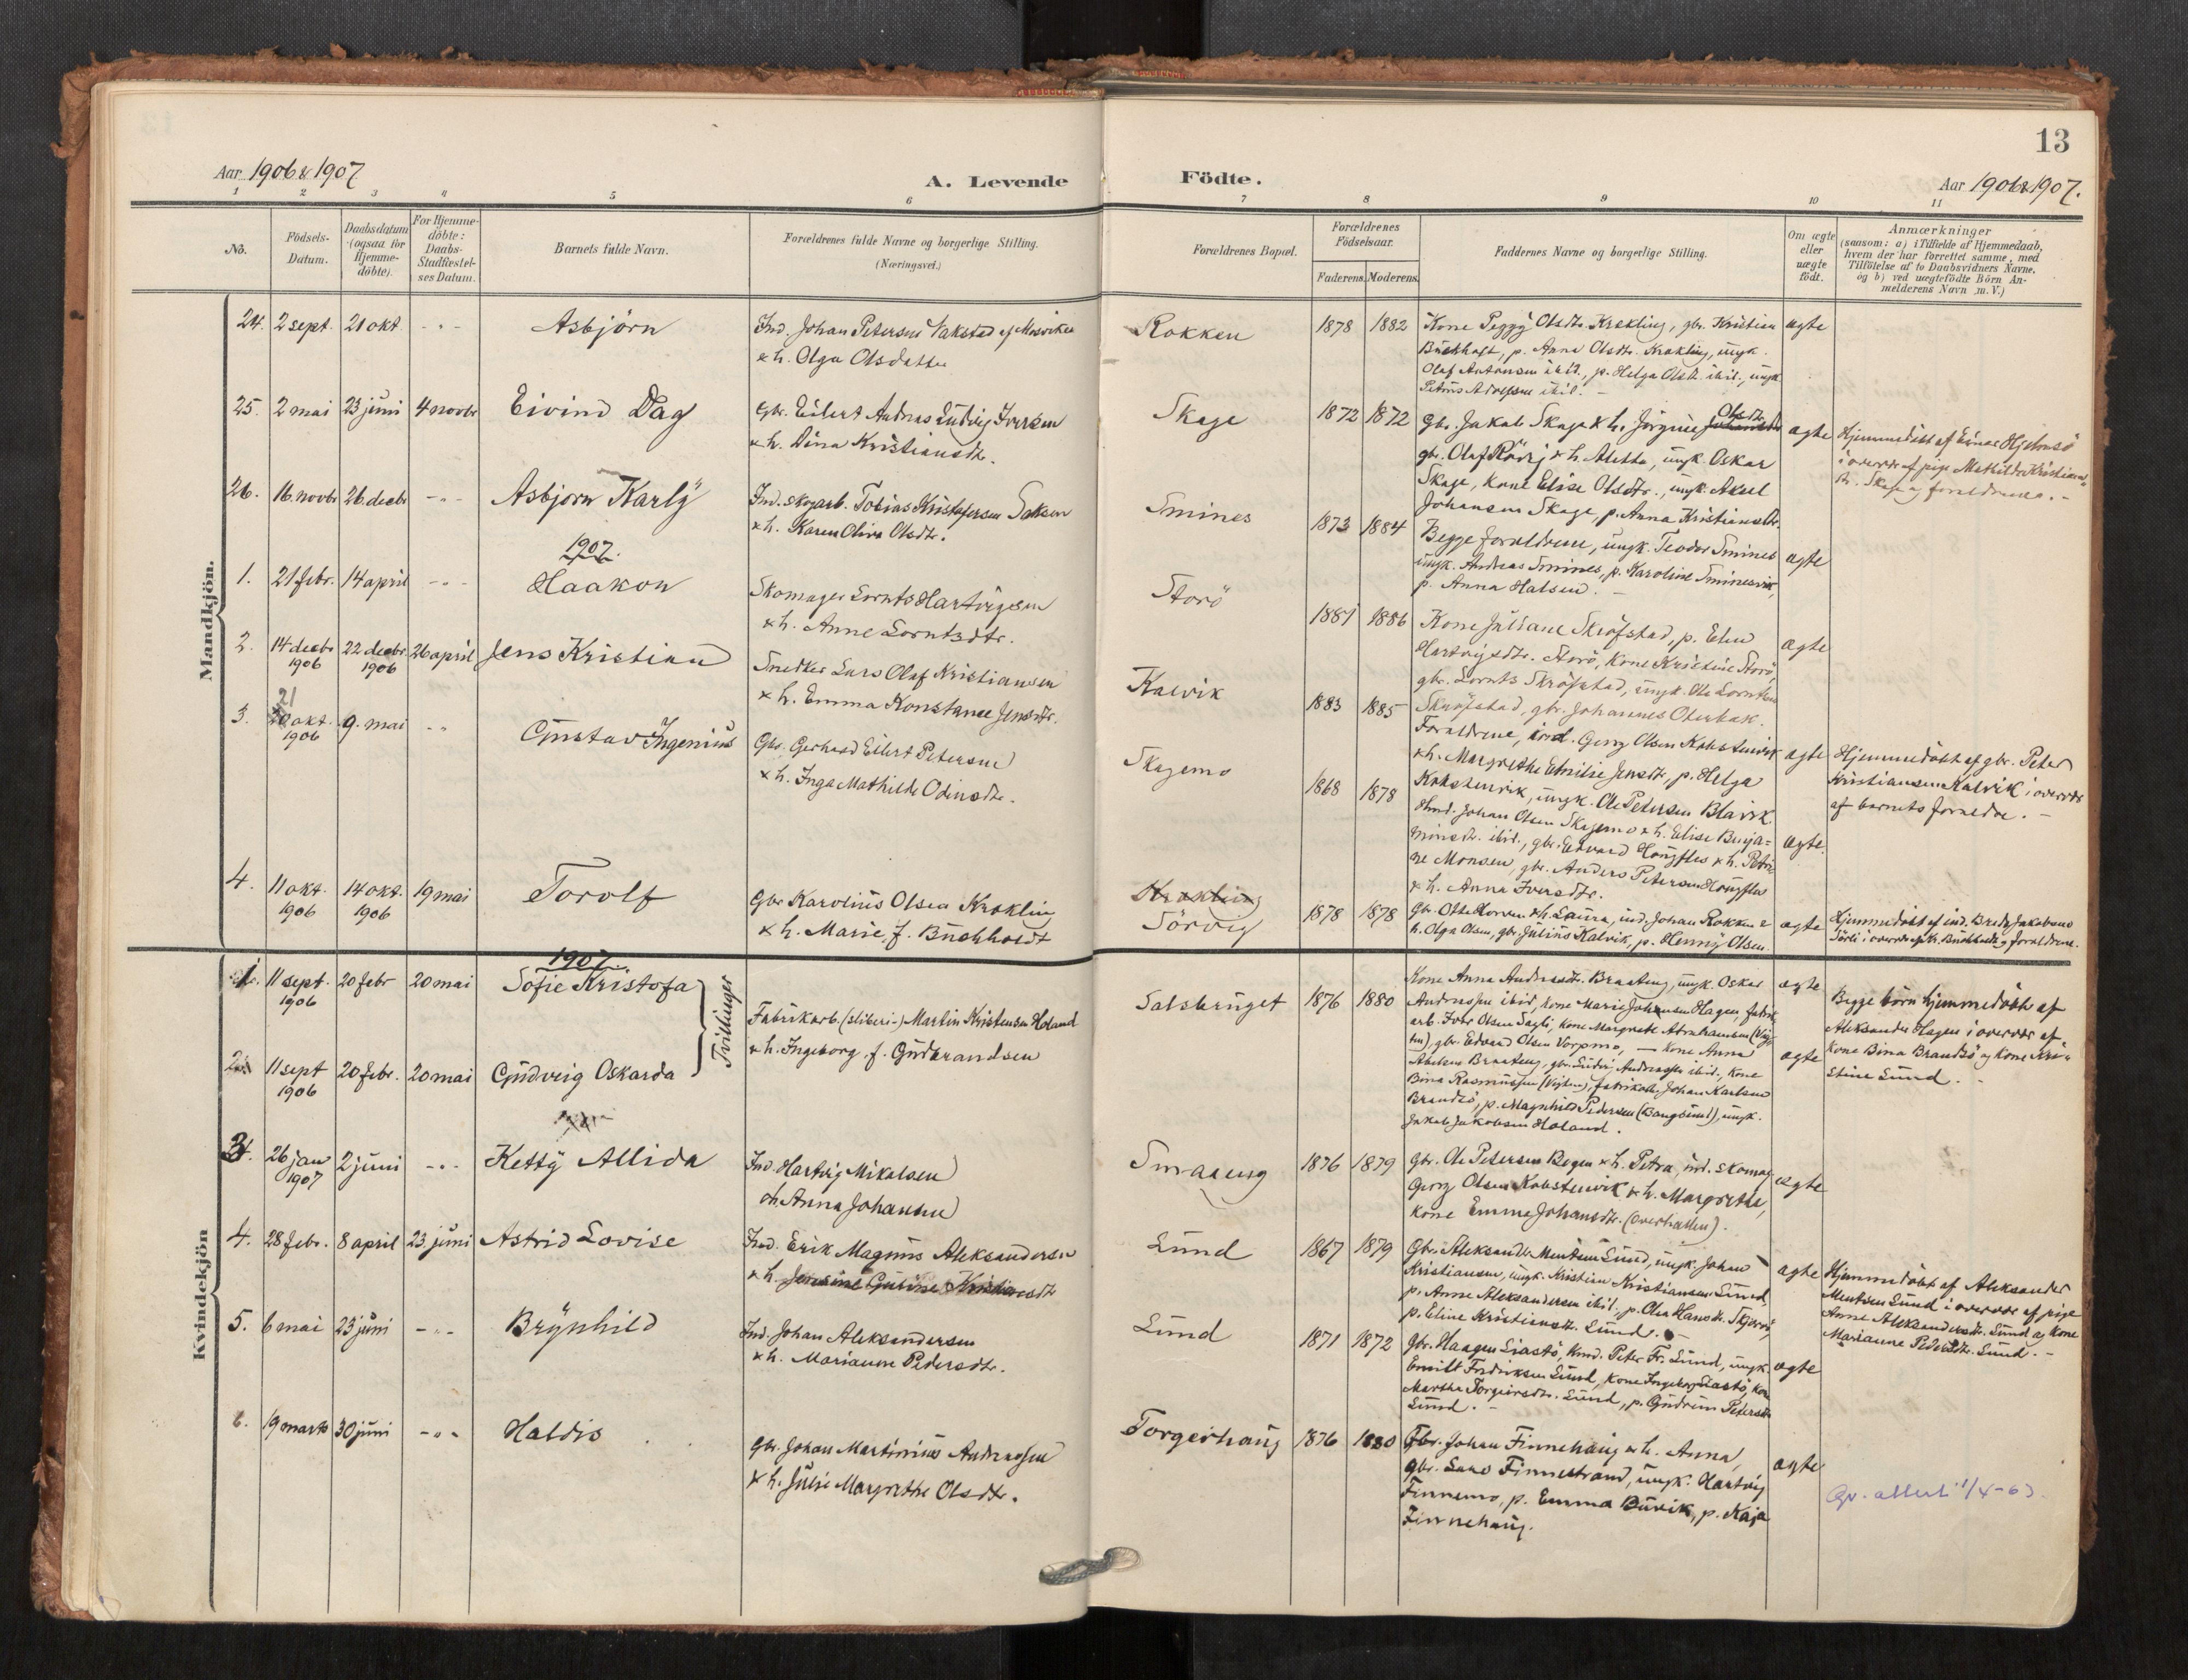 13
Aar 1906 & 1907
A. Levende
Födte.
Aar 1906 & 1907.
1 2 3 4 5 6 7 8 9 10 11
No.
Födsels-
Datum.
Daabsdatum
(ogsaa for
Hjemme-
döbte).
For Hjemme-
döbte:
Daabs-
Stadfæstel-
ses Datum.
Barnets fulde Navn.
Forældrenes fulde Navne og borgerlige Stilling.
(Næringsvei.)
Forældrenes Bopæl.
Forældrenes
Födselsaar.
Faderens. Moderens.
Faddernes Navne og borgerlige Stilling.
Om ægte
eller
uægte
födt.
Anmærkninger
(saasom: a) i Tilfælde af Hjemmedaab,
hvem der har forrettet samme, med
Tilföielse af to Daabsvidners Navne,
og b) ved uægtefödte Börn An-
melderens Navn m. V.)
Mandkjön.
24. 2 sept. 21 okt - " - Asbjörn
Ind. Johan Petersen Vakstad af Mosviken
& h. Olga Olsdatter
Rokken 1878 1882
Kone Peggy Olsdtr. Krekling, gbr. Kristian
Buchholt, p. Anna Olsdtr. Krekling, ungk.
Olaf Antonsen ibid., p. Helga Olsdtr. ibid., ungk.
Petrus Adolfsen ibid. -
ægte
25. 2 mai 23 juni 4 novbr Eivind Dag
Gbr. Eilert Andreas Ludvig Iversen
& h. Dina Kristiansdtr.
Skage 1872 1872
Gbr. Jakob Skage & h. Jörgine Olsdtr.
gbr. Olaf Rörvig & h. Alette, ungk. Oskar
Skage, kone Elise Olsdtr., ungk. Aksel
Johansen Skage, p. Anna Kristiansdtr.
ægte
Hjemmedöbt af Einar Hjelmsö
i overvær af pige Mathilde Kristians-
dtr. Skage og forældrene. -
26. 16 novbr 26 decbr - " - Asbjorn Karly
Ind. skogarb. Tobias Kristofersen Saksen
& h. Karen Oliva Olsdtr.
Smines 1873 1884
Begge forældrene, ungk. Teodor Smines
ungk. Andreas Smines, p. Karoline Sminesvik,
p. Anna Halsen. -
ægte
1907.
1. 21 febr. 14 april - " - Haakon
Skomager Lornts Hartvigsen
& h. Anne Lorntsdtr.
Storö 1881 1886
Kone Juliane Skröfstad, p. Elen
Hartvigsdtr. Storö, kone Kristine Storö,
gbr. Lornts Skröfstad, ungk. Ole Lorntsen
Skröfstad, gbr. Johannes Oterbak.
ægte
2. 14 decbr 1906 22 decbr 1906 26 april Jens Kristian
Snedker Lars Olaf Kristiansen
& h. Emma Konstanse Jensdtr.
Kalvik 1883 1885
Forældrene, ind. Georg Olsen Kobstenvik
& h. Margrethe Emilie Jensdtr., p. Helga
Kobstenvik, ungk. Ole Petersen Blavik.
ægte
Hjemmedöbt af gbr. Peter
Kristiansen Kalvik i overvær
af barnets forældre. -
3. 21 okt. 1906 9. mai - " - Gustav Ingenius
Gbr. Gerhard Eilert Petersen
& h. Inga Mathilde Odinsdtr.
Skagemo 1868 1878
Hmd. Johan Olsen Skagemo & h. Elise Benja-
minsdtr. ibid., gbr. Edvard Hougfles & h. Petri-
ne Monsen, gbr. Anders Petersen Hougfles
& h. Anna Iversdtr.
ægte.
4. 11 okt. 1906 14 okt. 1906 19 mai Torolf
Gbr Karolius Olsen Kroklin
& h. Marie, f. Buchholdt
Krekling
Sörvig 1878 1878
Gbr. Otte Horven & h. Laura, ind. Johan Rokken &
h. Olga Olsen, gbr. Julius Kalvik, p. Henny Olsen.
ægte
Hjemmedöbt af ind. Brede Jakobsen
Sörli i overvær af Kr. Buchholdt og forældrene.
Kvindekjön
1907.
1. 11 sept. 1906 20 febr 20 mai Sofie Kristofa
2. 11 sept 1906 20 febr. 20 mai Gudveig Oskarda
Tvillinger
Fabrikarb. (sliberi-) Martin Kristensen Holand
& h. Ingeborg, f. Gudbrandsen
Salsbruget 1876 1880
Kone Anna Andreasdtr. Braateng, ungk. Oskar
Andreassen ibid, kone Marie Johansen Hagen, fabrik-
arb. Iver Olsen Sagli, kone Margrete Abrahamsen (Vigh-
ten), gbr. Edvard Olsen Vorpmo, — Kone Anna
Abelsen Braateng, gbr. Ludvig Andreassen ibid., kone
Bina Rasmussen (Vigten), fabrikarb. Johan Karlsen
Brandsö, p. Magnhild Pedersen (Bangsund), ungk.
Jakob Jakobsen Holand.
ægte
ægte
Begge börn hjemmedöbt af
Aleksander Hagen i overvær af
Kone Bina Brandsö og kone Kri-
stine Lund. -
3. 26 jan 1907 2 juni - " - Ketty Allida
Ind. Hartvig Mikalsen
& h. Anna Johansen
Smaaeng 1876 1879
Gbr. Ole Petersen Bogen & h. Petra, ind. skomag.
Georg Olsen Kobstenvik & h. Margrethe,
kone Emma Johansdtr. (Overhallen).
ægte
4. 28 febr. 8 april 23 juni Astrid Lovise
Ind. Erik Magnus Aleksandersen
& h. Jensine Gurine Kristiansdtr
Lund 1867 1879
Gbr. Aleksander Mentsen Lund, ungk. Johan
Kristiansen, ungk. Kristian Kristiansen Lund,
p. Anne Aleksandersen ibid., p. Olea Hansdtr. Tkjervöy,
p. Eline Kristiansdtr. Lund. -
ægte
Hjemmedöbt af Aleksander
Mentsen Lund i overvær af pige
Anne Aleksandersdtr. Lund og kone
Marianne Pedersdtr. Lund. -
5. 6 mai 23 juni - " - Brynhild
Ind. Johan Aleksandersen
& h. Marianne Pedersdtr.
Lund 1871 1872
Gbr. Haagen Liastö, hmd. Peter Fr. Lund, ungk.
Emilt Fredriksen Lund, kone Ingeborg Liastö, kone
Martha Torgeirsdtr. Lund, p. Gudrun Petersdtr
Lund. -
ægte
6. 19 marts 30 juni - " - Haldis
Gbr. Johan Martinius Andreassen
& h. Julie Margrethe Olsdtr.
Torgerhaug 1876 1880
Gbr. Johan Finnehaug & h. Anna,
gbr. Lars Finnestrand, ungk. Hartvig
Finnemo, p. Emma Buvik, p. Kaja
Finnehaug.
ægte